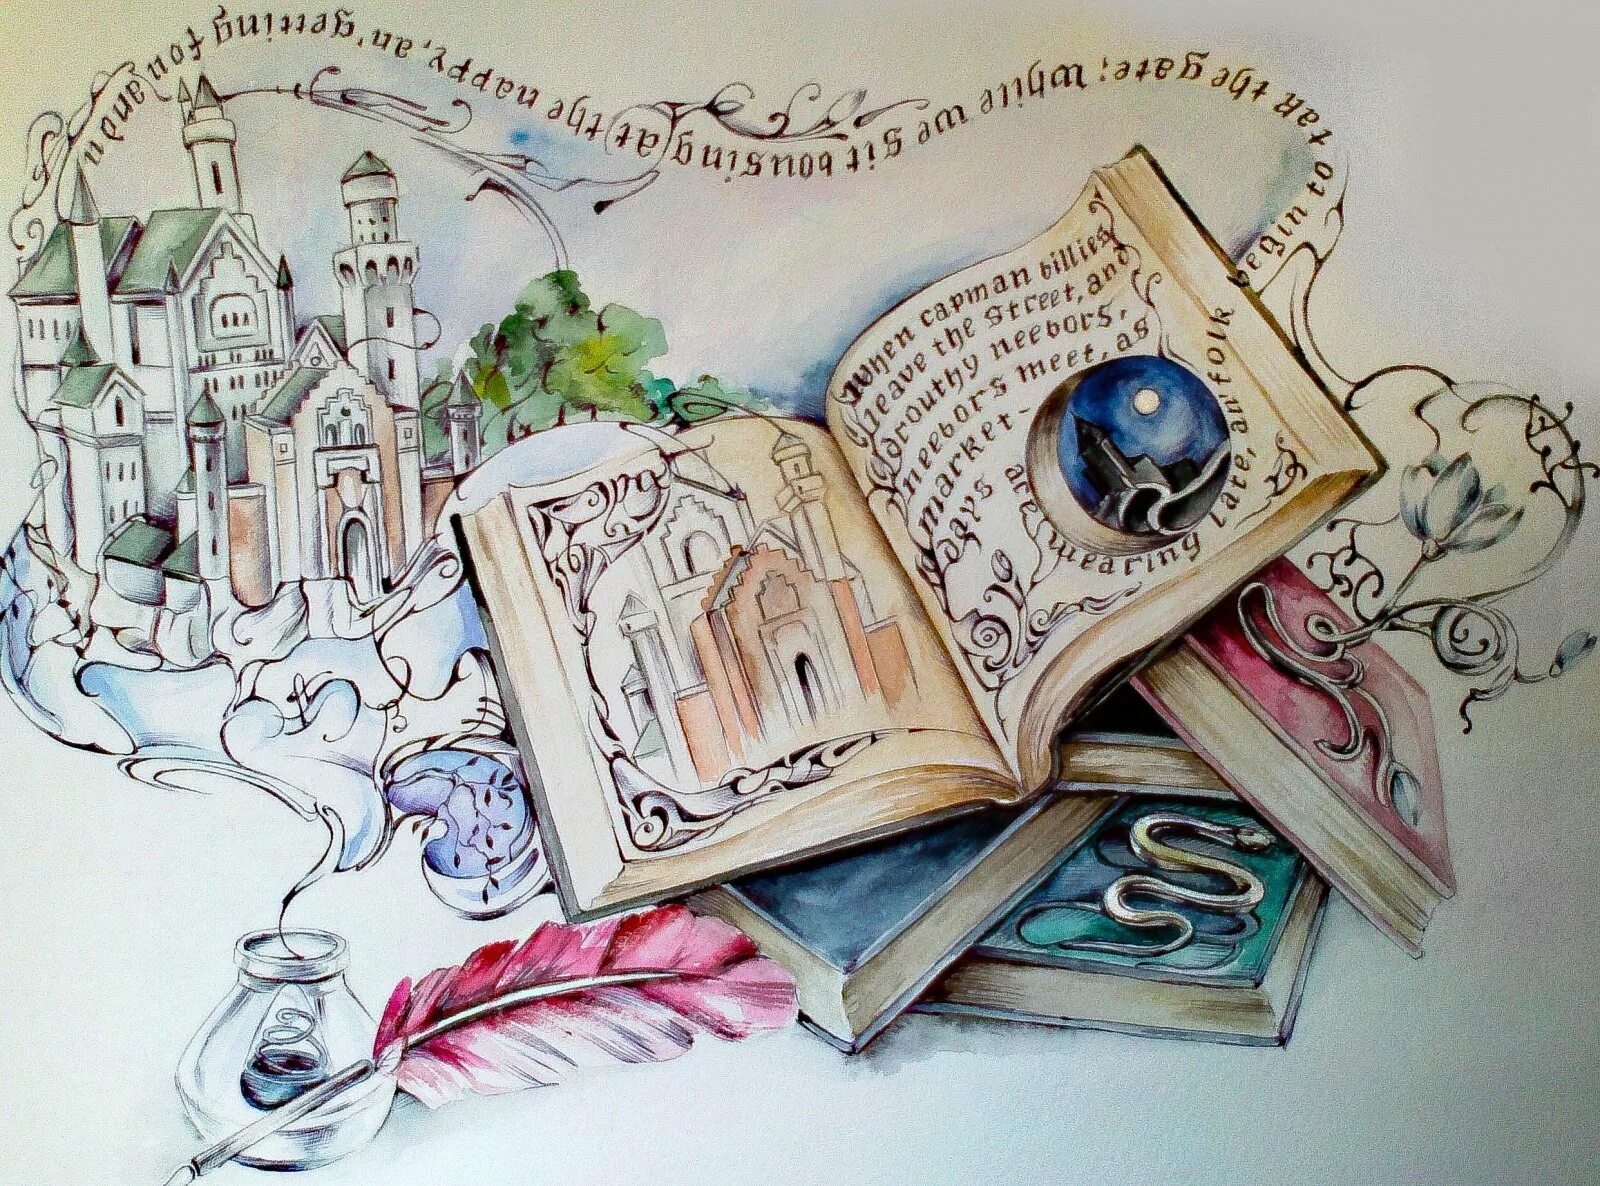 When capman billies
leave the street, and
drouthy neebors,
neebors meet, as
market-
day's
are wearing late, an'folk
begin to tak the gate; While we sit bousing at the nappy, an'getting fou andu